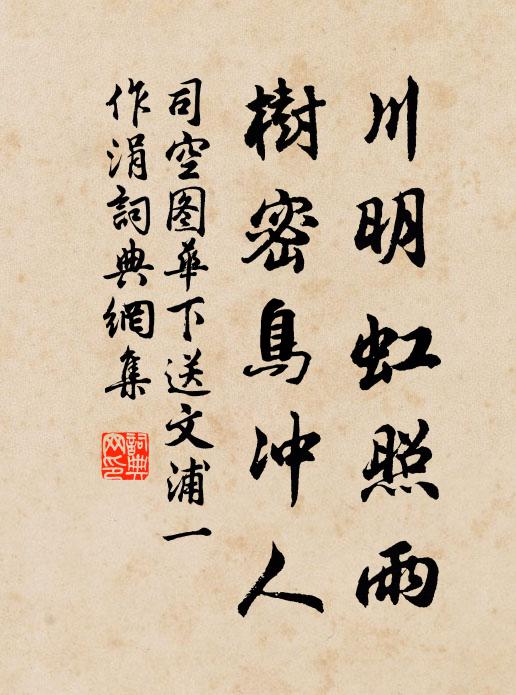 川明虹照雨
樹密鳥冲人
司空图華下送文浦一
作涓詞典網集
詞典
网印